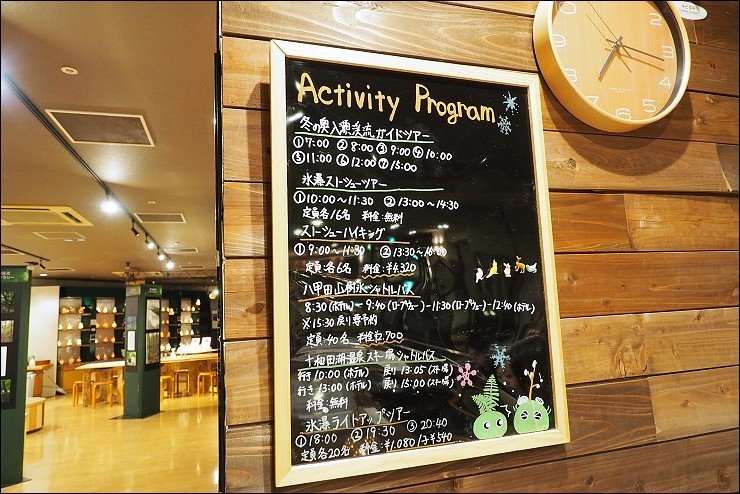 Activity Program
冬の奥入瀬渓流ガイドツアー
①7:00 ②8:00 ③9:00 ④10:00
⑤11:00 ⑥12:00 ⑦15:00
氷瀑スノーシューツアー
①10:00～11:30 ②13:00～14:30
定員各16名 料金:無料
スノーシューハイキング
①9:00～11:30 ②13:30～16:00
定員:各6名 料金:¥4,320
八甲田山樹氷シャトルバス
8:30(ホテル)-9:40(ロープウェー)-11:30(ロープウェー)-12:40(ホテル)
※15:30戻り要予約
定員:40名 料金¥2,700
十和田湖温泉スキー場シャトルバス
行き10:00(ホテル) 戻り13:05(スキー場)
行き13:00(ホテル) 戻り15:00(スキー場)
料金:無料
氷瀑ライトアップツアー
①18:00 ②19:30 ③20:40
定員各20名 料金:¥1,080/子¥540